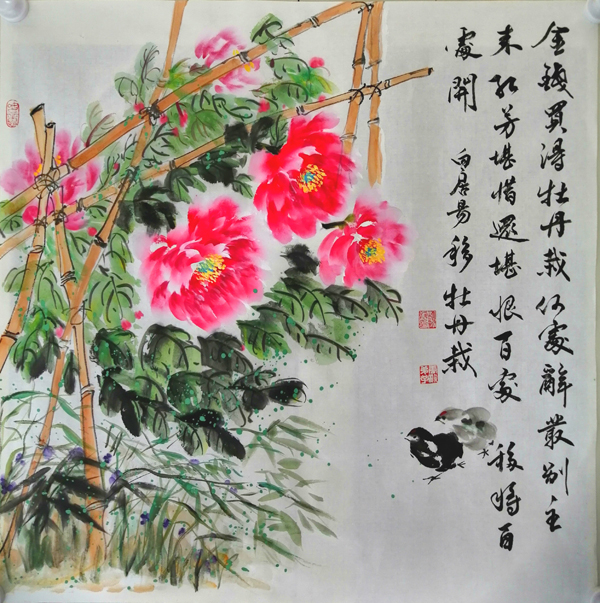 金錢買得牡丹栽何處辭叢別主
来红芳堪惜還堪恨百處移將百
處開 白居易移牡丹栽